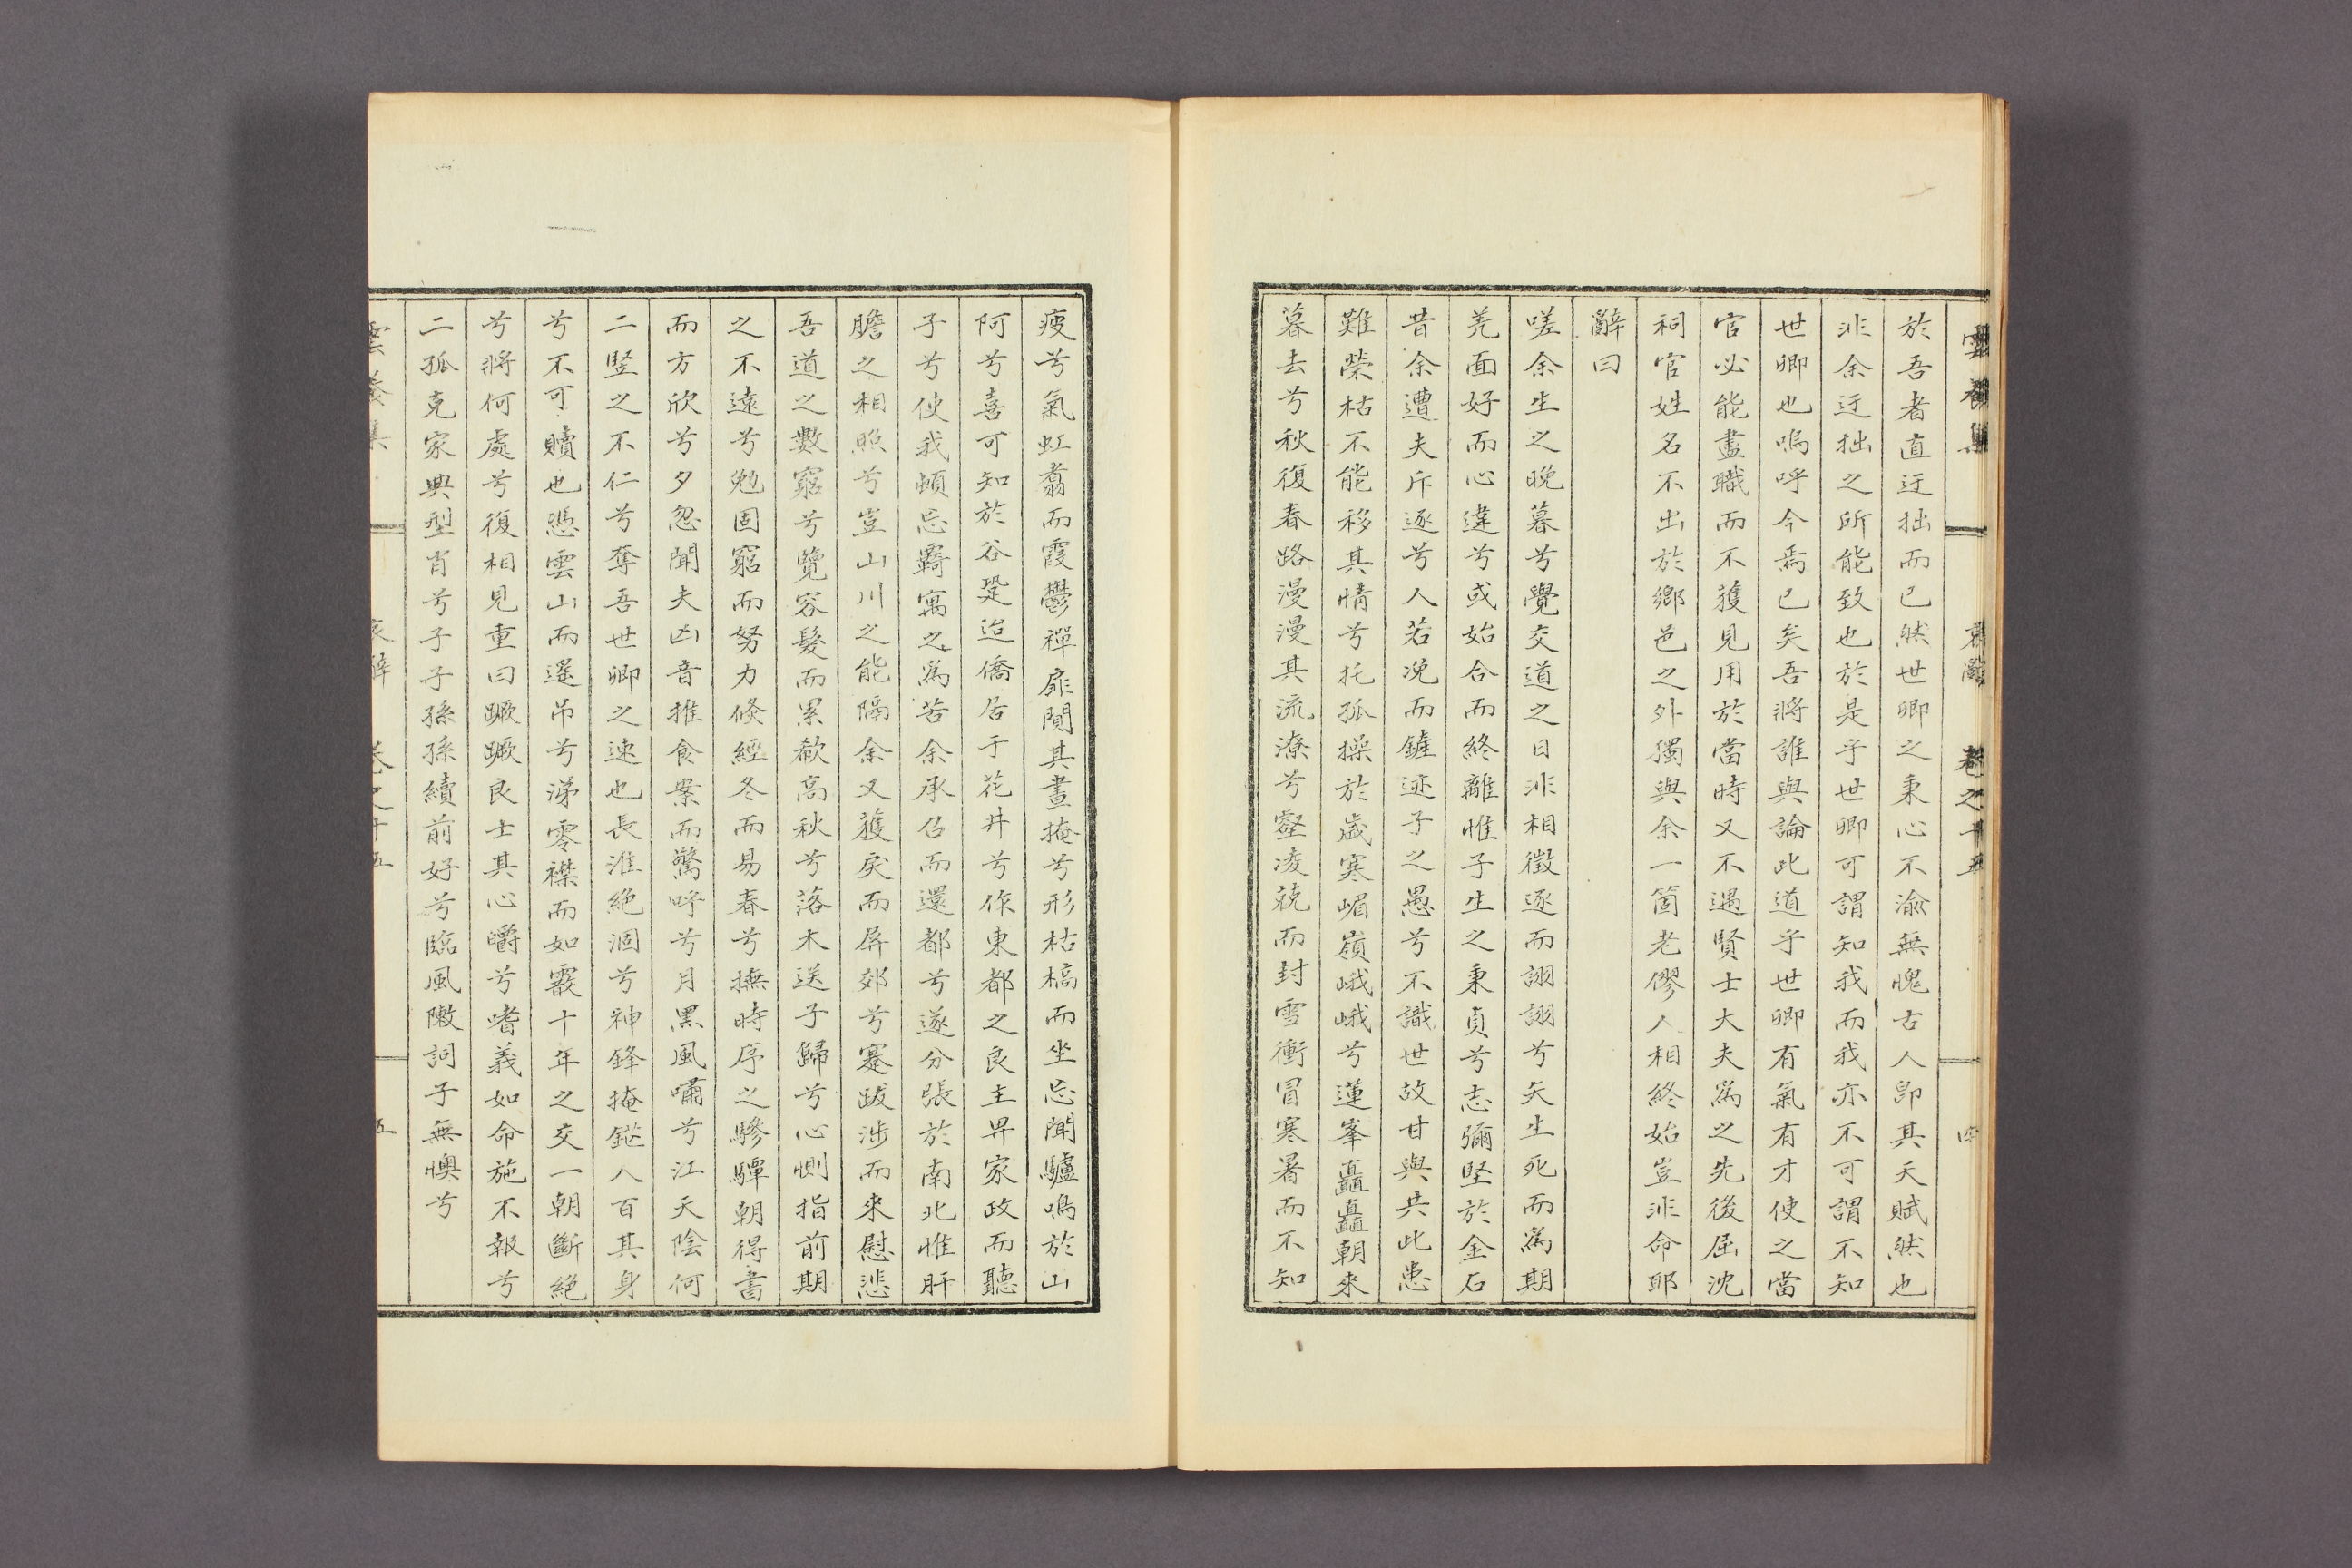 雲養集 哀辭 卷之十五 四
於吾者直迂拙而已然世卿之秉心不渝無愧古人卽其天賦然也
非余迂拙之所能致也於是乎世卿可謂知我而我亦不可謂不知
世卿也嗚呼今焉已矣吾將誰與論此道乎世卿有氣有才使之當
官必能盡職而不獲見用於當時又不遇賢士大夫爲之先後屈沈
祠官姓名不出於鄕邑之外獨與余一箇老僇人相終始豈非命耶
辭曰
嗟余生之晩暮兮覺交道之日非相徵逐而詡詡兮矢生死而爲期
羌面好而心違兮或始合而終離惟子生之秉貞兮志彌堅於金石
昔余遭夫斥逐兮人若浼而鏟迹子之愚兮不識世故甘與共此患
難榮枯不能移其情兮托孤操於歲寒嵋嶺峨峨兮蓮峯矗矗朝來
暮去兮秋復春路漫漫其流潦兮壑凌兢而封雪衝冒寒暑而不知
疲兮氣虹翥而霞鬱禪扉閴其晝掩兮形枯槁而坐忘聞驢鳴於山
阿兮喜可知於谷跫迨僑居于花井兮作東都之良主畀家政而聽
子兮使我頓忘羇寓之爲苦余承召而還都兮遂分張於南北惟肝
膽之相照兮豈山川之能隔余又獲戾而屛郊兮蹇跋涉而來慰悲
吾道之數窮兮覽容髮而累欷高秋兮落木送子歸兮心惻指前期
之不遠兮勉固窮而努力倐經冬而易春兮撫時序之驂驔朝得書
而方欣兮夕忽聞夫凶音推食案而驚呼兮月黑風嘯兮江天陰何
二豎之不仁兮奪吾世卿之速也長淮絶涸兮神鋒掩鋩人百其身
兮不可贖也憑雲山而遙吊兮涕零襟而如霰十年之交一朝斷絶
兮將何處兮復相見重曰蹶蹶良士其心皭兮嗜義如命施不報兮
二孤克家典型肖兮子子孫孫續前好兮臨風陳詞子無懊兮
雲養集 哀辭 卷之十五 五